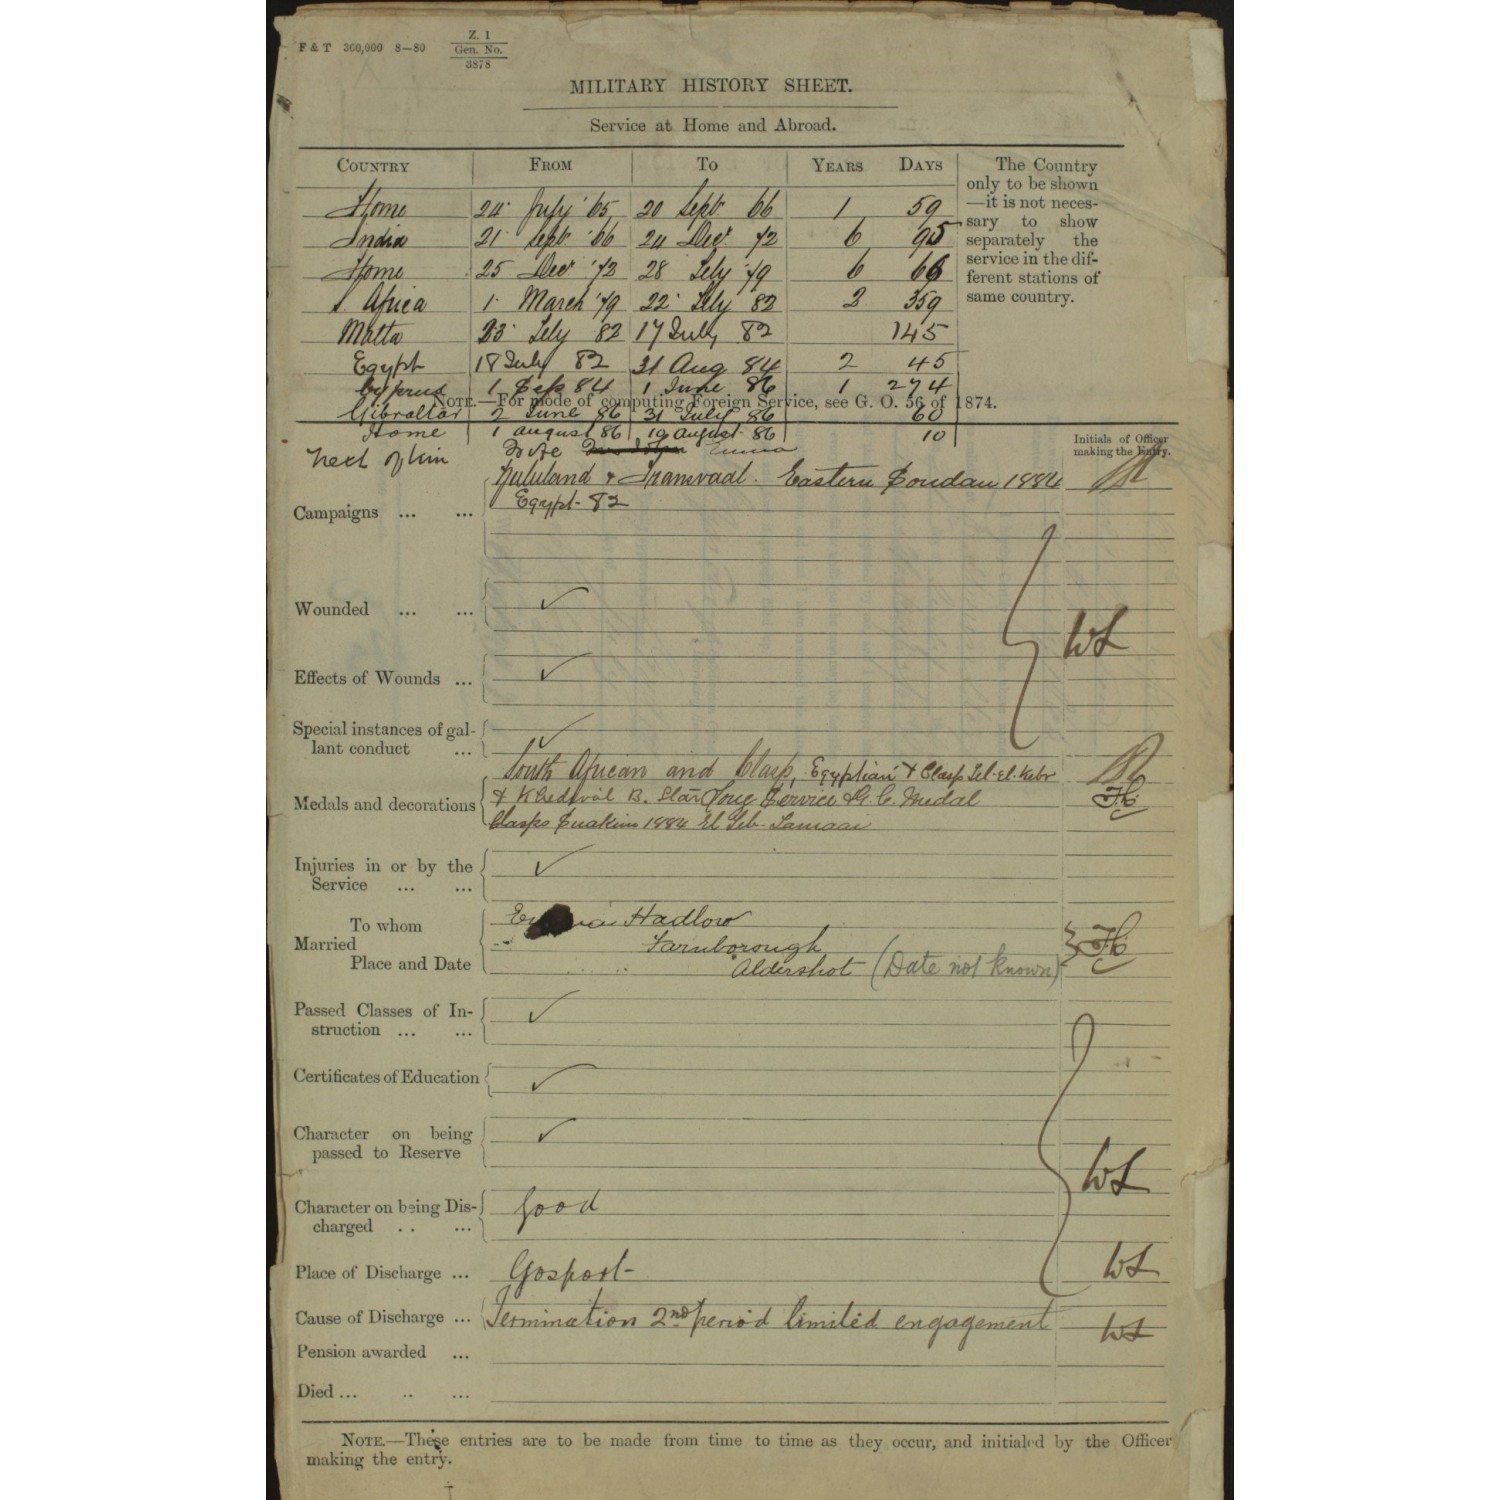 F & T 360,000 8—80
Z. 1
Gen. No.
3878
MILITARY HISTORY SHEET.
Service at Home and Abroad.
COUNTRY FROM TO YEARS DAYS
Home 24 July '65 20 Sept. 66 1 59
India 21 Sept. '66 24 Decr 72 6 95
Home 25 Decr '72 28 Feby '79 6 66
S. Africa 1 March '79 22 Feby 82 2 359
Malta 23 Feby '82 17 July 82 145
Egypt 18 July 82 31 Aug 84 2 45
Cyprus 1 Sep 84 1 June 86 1 274
Gibraltar 2 June 86 31 July 86 60
Home 1 august 86 10 august 86 10
The Country
only to be shown
—it is not neces-
sary to show
separately the
service in the dif-
ferent stations of
same country.
NOTE.—For mode of computing Foreign Service, see G. O. 56 of 1874.
Initials of Officer
making the Entry.
Next of kin Wife Emma
Zululand & Transvaal. Eastern Soudan 1884
Campaigns ... ... Egypt- 82
Wounded ... ... ✓
WL
Effects of Wounds ... ✓
Special instances of gal-
lant conduct ... ✓
South African and Clasp, Egyptian & Clasp Tel-El-Kebr
Medals and decorations & Khedival B. Star Long Service & G. C. Medal
Clasps Suakim 1884 El Teb-Tamaai
Injuries in or by the
Service ... ... ✓
To whom
Married
Place and Date
Hadlow
Farnborough
Aldershot (Date not known)
Passed Classes of In-
struction ... ... ✓
Certificates of Education ✓
Character on being
passed to Reserve ✓
WL
Character on being Dis-
charged .. ... Good
Place of Discharge ... Gosport- WL
Cause of Discharge ... Termination 2nd period limited engagement WL
Pension awarded ...
Died ... .. ...
NOTE.—These entries are to be made from time to time as they occur, and initialed by the Officer
making the entry.